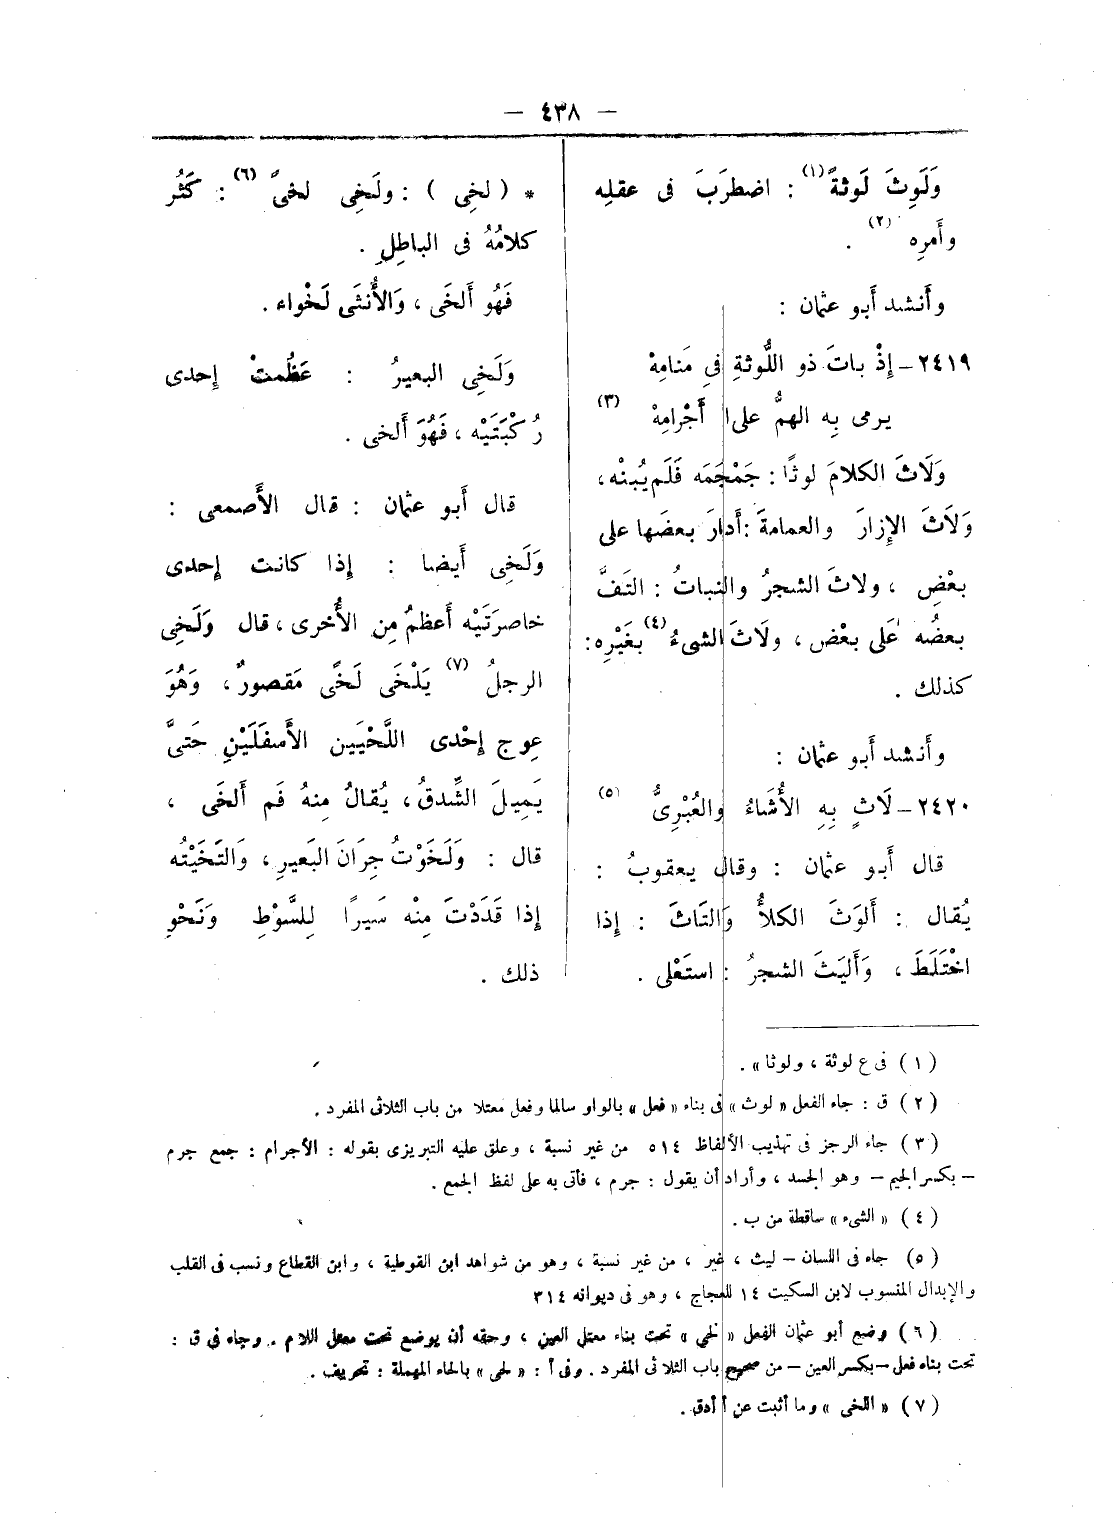 — ٤٣٨ —
وَلَوِثَ لَوثةً(١) : اضطرَبَ فى عقلِه
وأَمرِه (٢) .
وأَنشد أَبو عثمان :
٢٤١٩ــ إِذْ باتَ ذو اللُّوثةِ فِى مَنامِهْ
يرمى بِه الهمُّ على أَجْرامِهْ (٣)
وَلَاثَ الكلامَ لوثًا : جَمْجَمَه فَلَم يُبنْه ،
وَلَاثَ الإِزارَ والعمامةَ : أَدارَ بعضَها على
بعْضِ ، ولاثَ الشجرُ والنباتُ : التَفَّ
بعضُه عَلَى بعْض ، ولَاثَ الشىءُ(٤) بغَيْرِه :
كذلك .
وأَنشد أَبو عثمان :
٢٤٢٠ــ لَاثٍ بِهِ الأَشَاءُ والعُبْرِىُّ (٥)
قال أَبو عثمان : وقال يعقوبُ :
يُقال : أَلوَثَ الكلأُ وَالتَاثَ : إِذا
اخْتَلَطَ ، وَأَليَثَ الشجرُ : استَعْلى .
* ( لخِى ) : ولَخِى لخىً (٦) : كَثُر
كلامُهُ فى الباطِلِ .
فَهُو أَلخَى ، وَالأُنثَى لَخْواء .
وَلَخِى البعيرُ : عَظُمتْ إِحدى
رُكْبَتَيْه ، فَهُوَ أَلخى .
قال أَبو عثمان : قال الأَصمعى :
وَلَخِى أَيضا : إِذا كانت إِحدى
خاصرَتَيْه أَعظمُ مِن الأُخرى ، قال وَلَخِى
الرجلُ (٧) يَلْخَى لَخًى مَقصورٌ ، وَهُوَ
عِوج إِحْدى اللَّحْيَين الأَسفَلَيْنِ حَتىَّ
يَمِيلَ الشِّدقُ ، يُقالُ مِنهُ فَم أَلخَى ،
قال : وَلَخَوْتُ جِرَانَ البَعيرِ ، وَالتَخَيْتُه
إِذا قَدَدْتَ مِنْه سَيرًا لِلسَّوْطِ وَنَحْوِ
ذلك .
(١) فى ع لوثة ، ولوثا » .
(٢) ق : جاء الفعل « لوث » فى بناء « فعل » بالواو سالما وفعل معتلا من باب الثلاثى المفرد .
(٣) جاء الرجز فى تهذيب الألفاظ ٥١٤ من غير نسبة ، وعلق عليه التبريزى بقوله : الأجرام : جمع جرم
– بكسر الجيم – وهو الجسد ، وأراد أن يقول : جرم ، فأتى به على لفظ الجمع .
(٤) « الشىء » ساقطة من ب .
(٥) جاء فى اللسان – ليث ، غير ، من غير نسبة ، وهو من شواهد ابن القوطية ، وابن القطاع ونسب فى القلب
والإبدال المنسوب لابن السكيت ١٤ للعجاج ، وهو فى ديوانه ٣١٤
(٦) وضع أبو عثمان الفعل « لخى » تحت بناء معتل العين ، وحقه أن يوضع تحت معتل اللام . وجاء فى ق :
تحت بناء فعل –بكسر العين – من صحيح باب الثلاثى المفرد . وفى أ : « لحى » بالحاء المهملة : تحريف .
(٧) « اللخى » وما أثبت عن أ أدق .